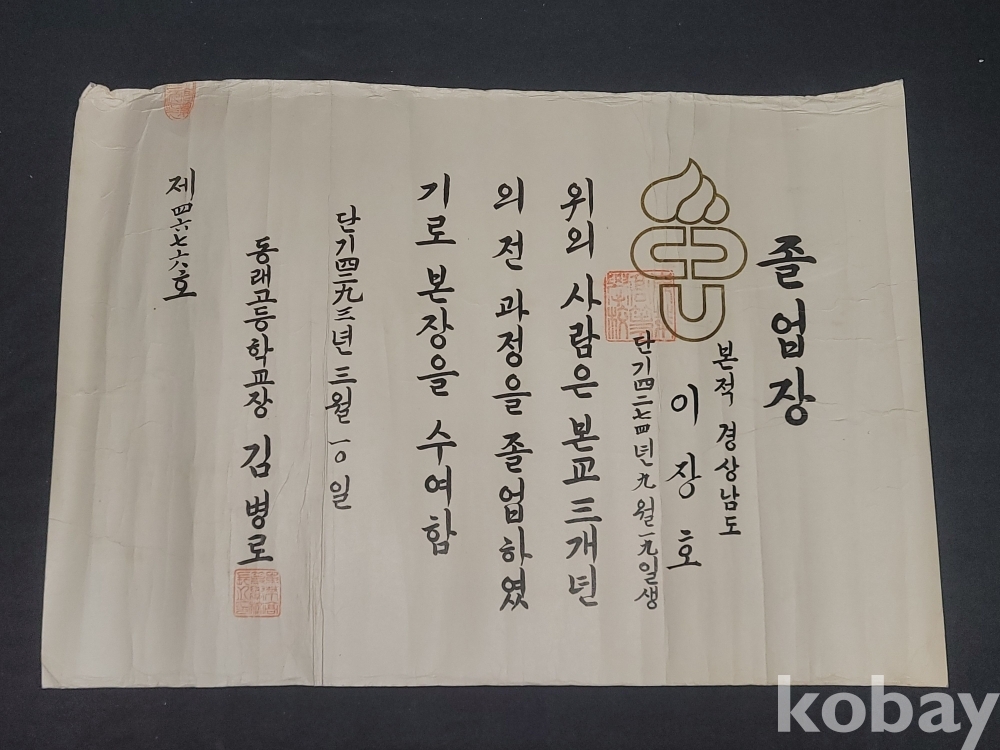 졸업장
본적 경상남도
이장호
단기四二七四년九월一九일생
위의 사람은 본교三개년
의 전 과정을 졸업하였
기로 본장을 수여함
단기四二九三년三월一〇일
동래고등학교장 김병로
제四六七六호
kobay